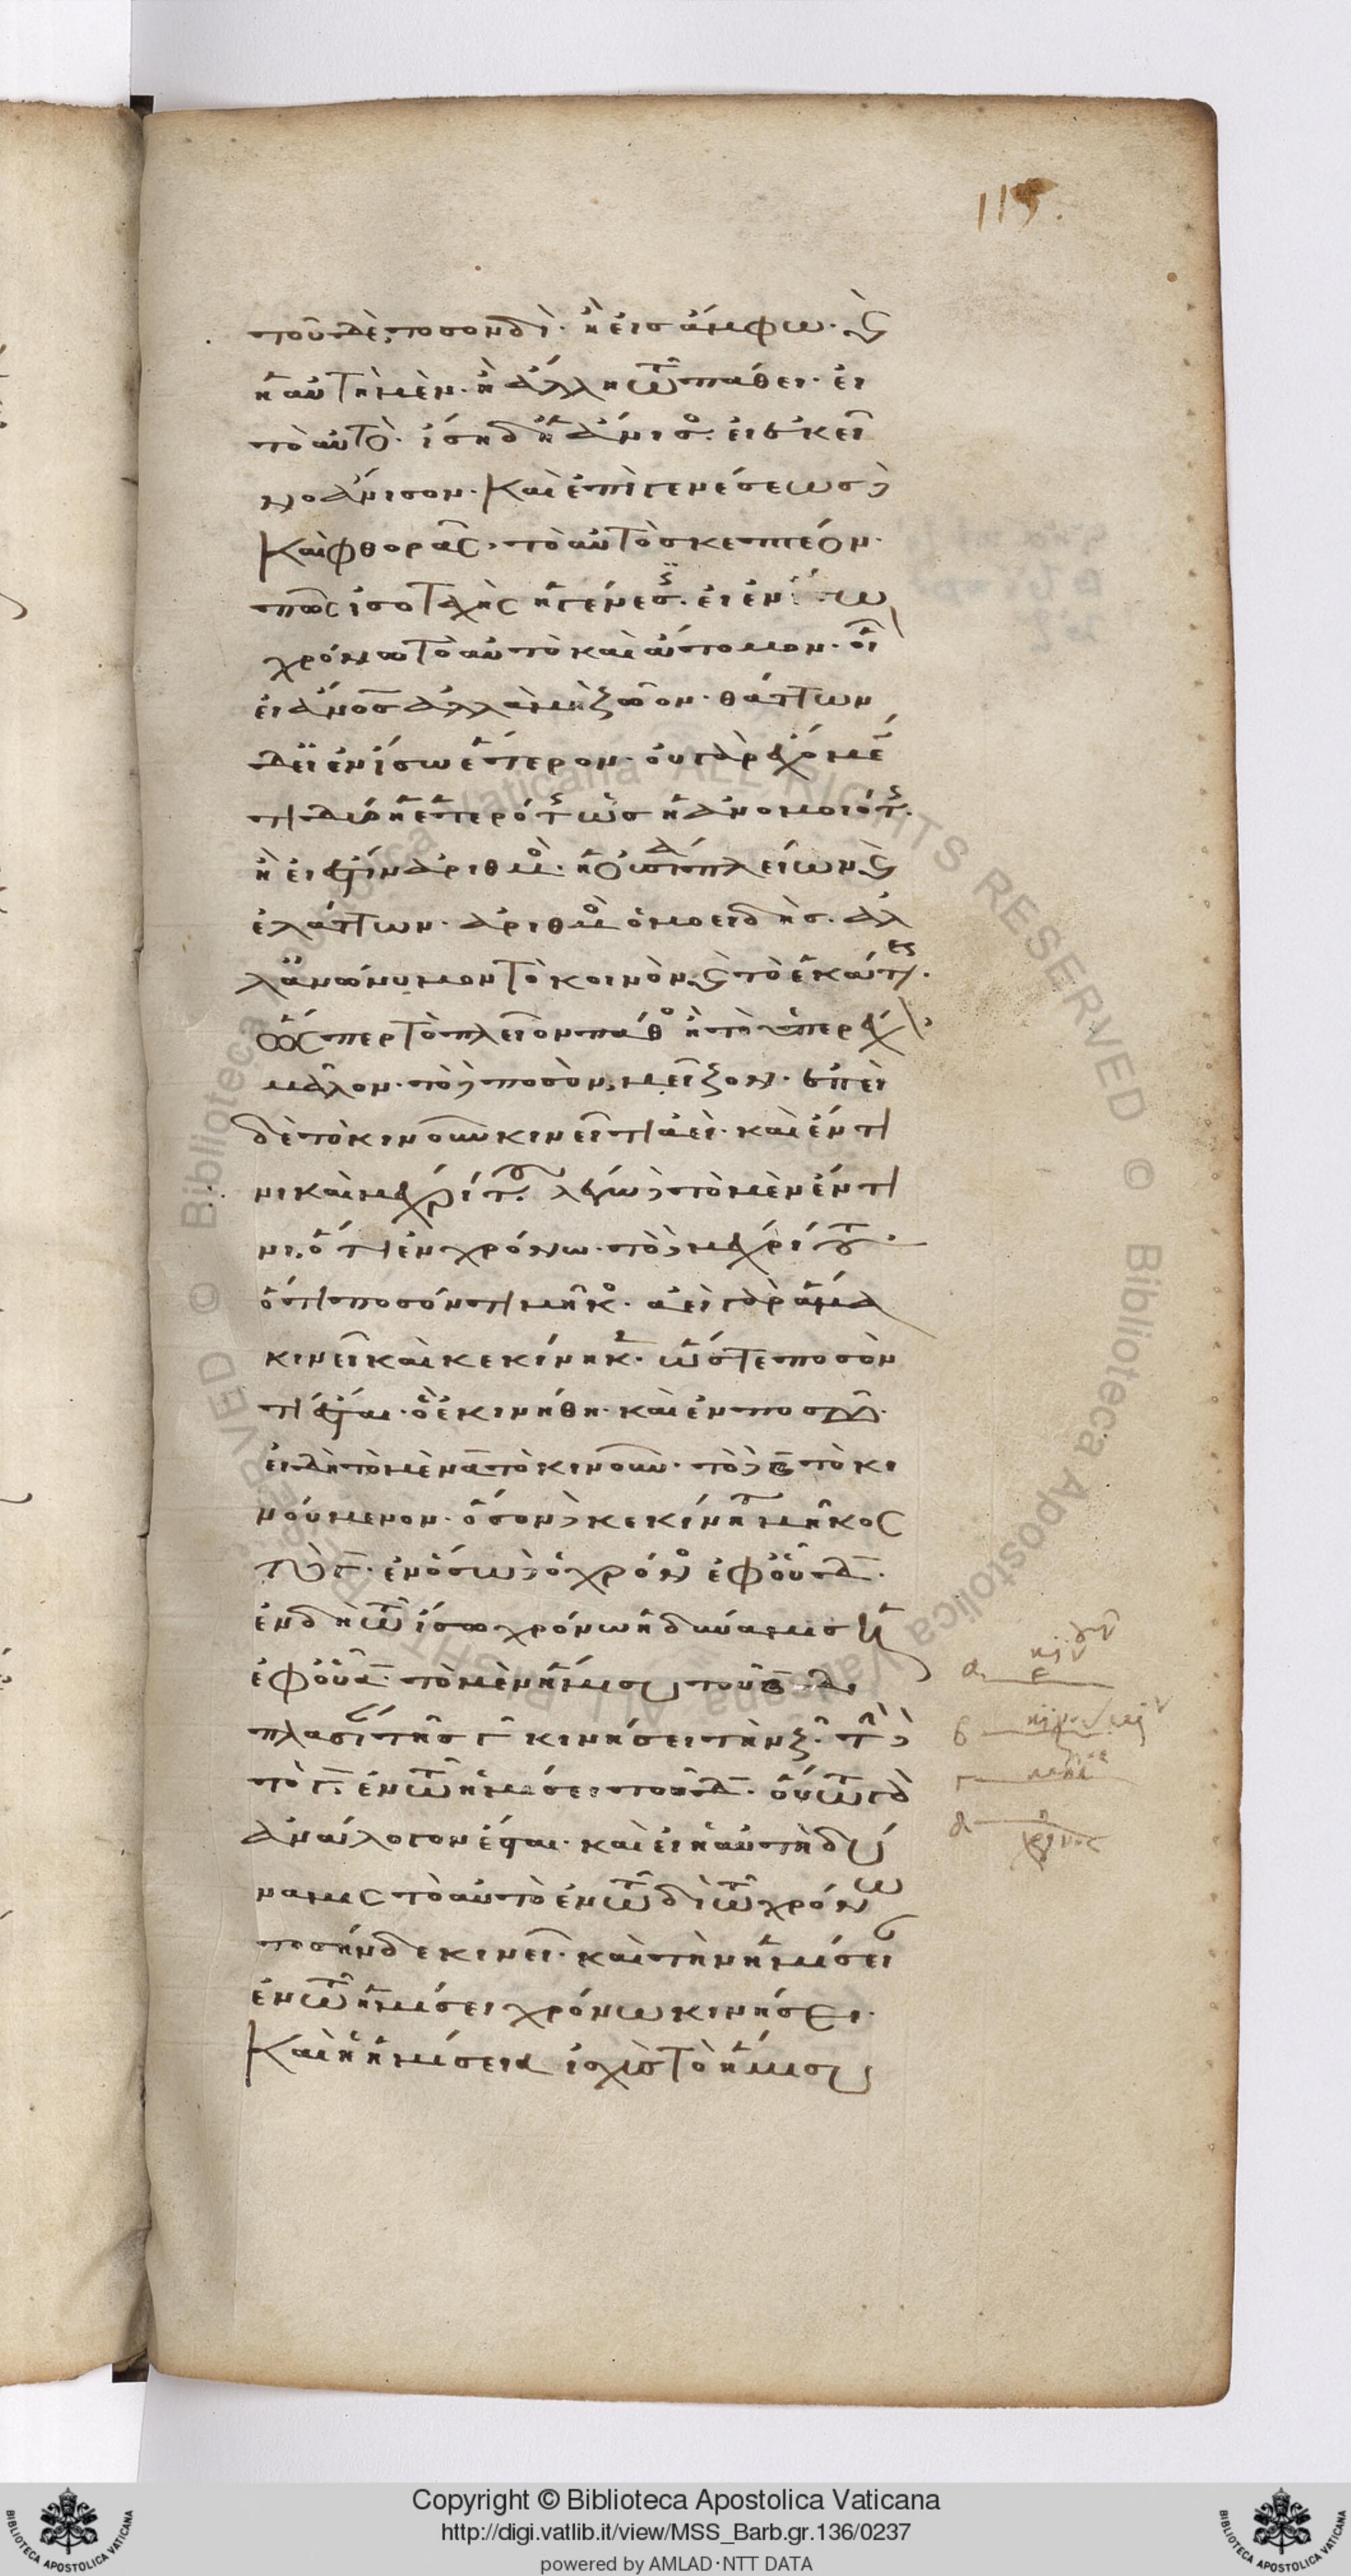 115.
τοῦδε, ποσονδὶ· ἢ εἰς ἄμφω· καὶ
ἡ αὐτὴ μὲν· ἢ ἄλλη τῷ πάθει· εἰ
τὸ αὐτὸ· ἴση δ' ἢ ἄνισος· εἰ ἐκεῖ
νο ἄνισον· Καὶ ἐπὶ γενέσεως δὲ
Καὶ φθορᾶς, τὸ αὐτὸ σκεπτέον·
πῶς ἰσοταχὴς ἡ γένεσις· εἰ ἐν ἴσῳ
χρόνῳ τὸ αὐτὸ καὶ ἄτομον· οἷον
εἰ ἄνθρωπος ἀλλὰ μὴ ζῷον· θάττων
δ' εἰ ἐν ἴσῳ ἕτερον· οὐ γὰρ ἔχομέν
τινα δύο ἡ ἑτερότης ὡς ἡ ἀνομοιότης·
ἢ εἰ ἔστιν ἀριθμὸς· ἡ οὐσία πλείων καὶ
ἐλάττων· ἀριθμὸς ὁμοειδής· ἀλ
λ' ἀνώνυμον τὸ κοινὸν, καὶ τὸ ἑκάτερον·
ὥσπερ τὸ πλεῖον πάθος ἢ τὸ ὑπερέχον
μᾶλλον· τὸ δὲ ποσὸν, μεῖζον· ἐπεὶ
δὲ τὸ κινοῦν κινεῖ τι ἀεὶ· καὶ ἔν τι
νι καὶ μέχρι του· λέγω δὲ τὸ μὲν ἔν τι
νι, ὅτι ἐν χρόνῳ· τὸ δὲ μέχρι του·
ὅτι ποσόν τι μῆκος· ἀεὶ γὰρ ἅμα
κινεῖ καὶ κεκίνηκεν· ὥστε ποσὸν
τι ἔσται· ὃ ἐκινήθη· καὶ ἐν ποσῷ·
εἰ δὴ τὸ μὲν α τὸ κινοῦν· τὸ δὲ β τὸ κι
νούμενον· ὅσον δὲ κεκίνηται μῆκος
τὸ γ· ἐν ὅσῳ δὲ ὁ χρόνος ἐφ' οὗ δ·
ἐν δὴ τῷ ἴσῳ χρόνῳ ἡ δύναμις ἡ
ἐφ' οὗ α· τὸ μὲν ἥμισυ τοῦ β δι
πλασίαν τῆς γ κινήσει τὴν ξ· τὴν δὲ
τὸ γ· ἐν τῷ ἡμίσει τοῦ δ· οὕτω γὰρ
ἀνάλογον ἔσται· καὶ εἰ ἡ αὐτὴ δύ
ναμις τὸ αὐτὸ ἐν τῳδὶ τῷ χρόνῳ
τοσήνδε κινεῖ· καὶ τὴν ἡμίσειαν
ἐν τῷ ἡμίσει χρόνῳ κινήσει·
Καὶ ἡ ἡμίσεια ἰσχὺς τὸ ἥμισυ
α
β
γ
δ
Copyright © Biblioteca Apostolica Vaticana
http://digi.vatlib.it/view/MSS_Barb.gr.136/0237
powered by AMLAD·NTT DATA